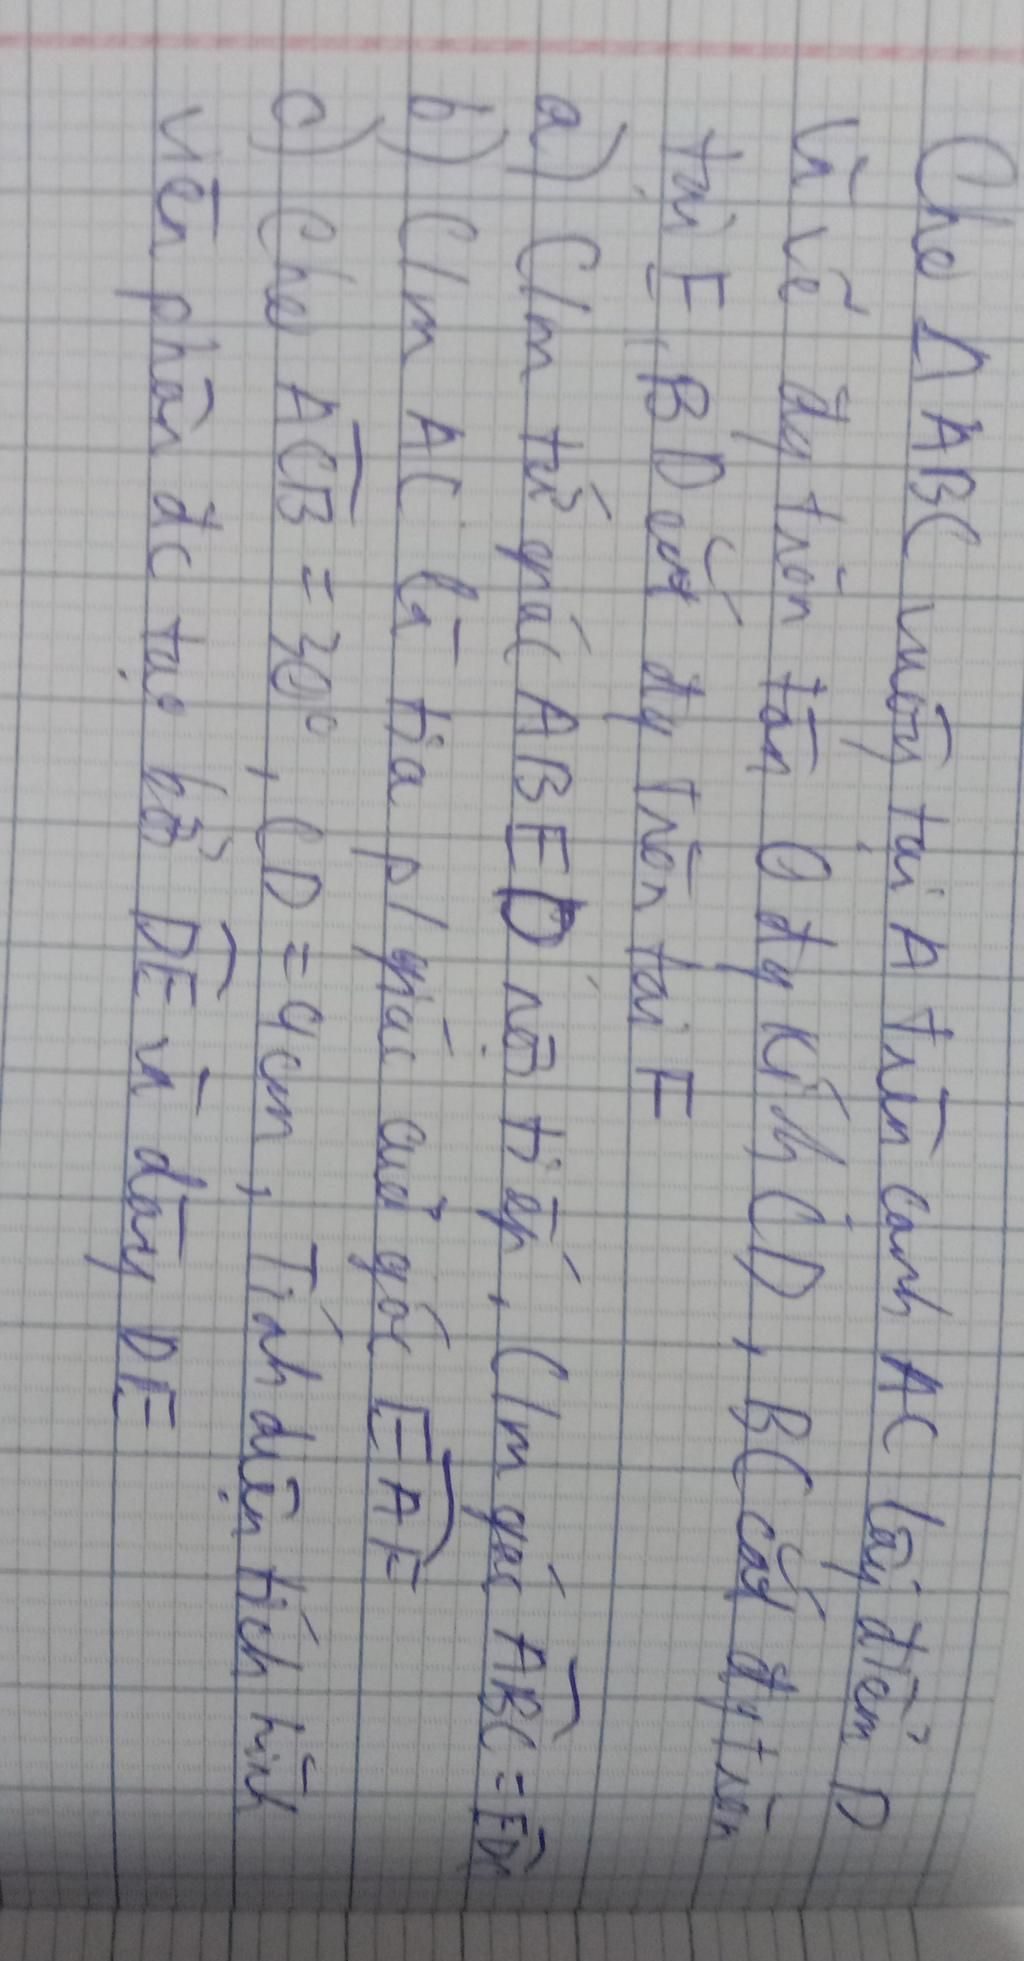 Cho Δ ABC vuông tại A trên cạnh AC lấy điểm D
và vẽ đg tròn tâm O đg kính CD, BC cắt đg tròn
tại E, BD cắt đg tròn tại F
a) C/m tứ giác ABED nội tiếp, C/m góc ABC = EDC
b) C/m AC là tia p/giác của góc EAF
c) Cho ACB = 30°, CD = 4cm, Tính diện tích hình
viên phân đc tạo bởi DE và dây DE